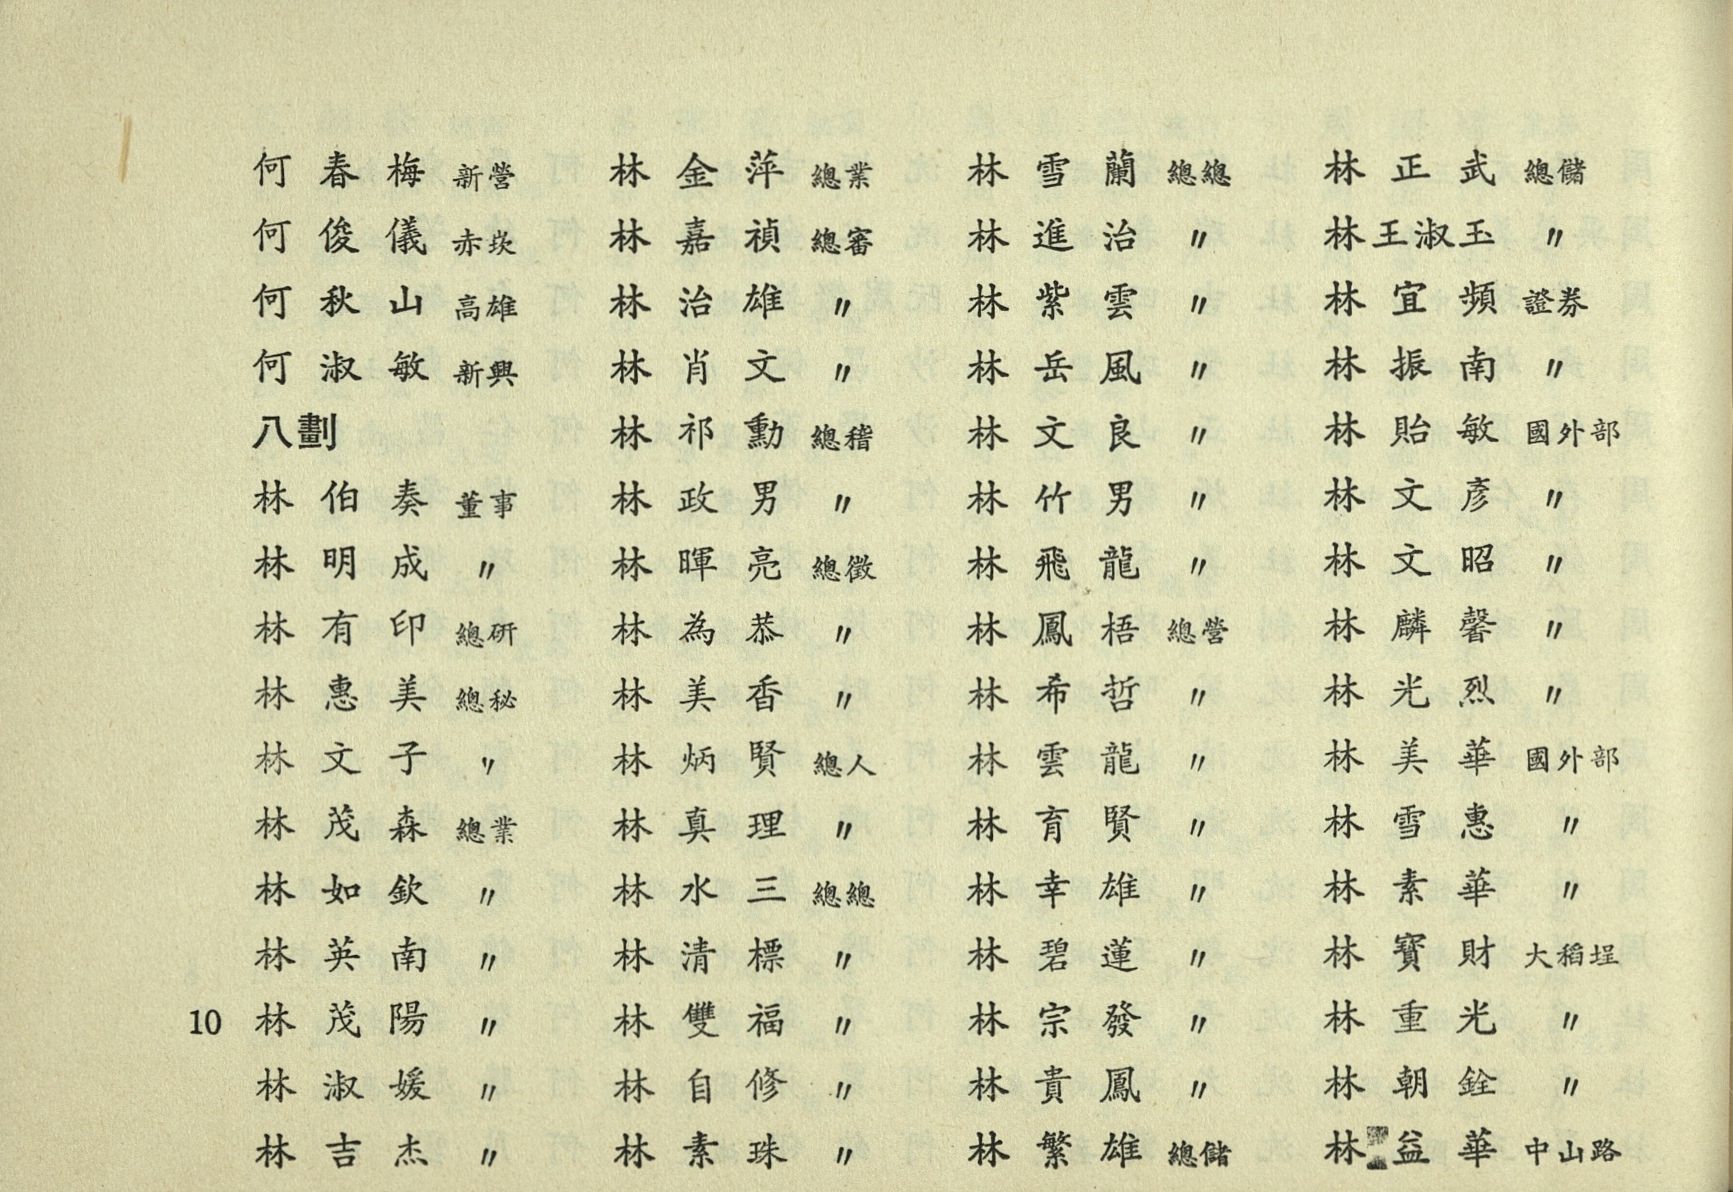 何春梅 新營
何俊儀 赤崁
何秋山 高雄
何淑敏 新興
八劃
林伯奏 董事
林明成 〃
林有印 總研
林惠美 總秘
林文子 〃
林茂森 總業
林如欽 〃
林英南 〃
林茂陽 〃
林淑媛 〃
林吉杰 〃
林金萍 總業
林嘉禎 總審
林治雄 〃
林肖文 〃
林祁勳 總稽
林政男 〃
林暉亮 總徵
林為恭 〃
林美香 〃
林炳賢 總人
林真理 〃
林水三 總總
林清標 〃
林雙福 〃
林自修 〃
林素珠 〃
林雪蘭 總總
林進治 〃
林紫雲 〃
林岳風 〃
林文良 〃
林竹男 〃
林飛龍 〃
林鳳梧 總營
林希哲 〃
林雲龍 〃
林育賢 〃
林幸雄 〃
林碧蓮 〃
林宗發 〃
林貴鳳 〃
林繁雄 總儲
林正武 總儲
林王淑玉 〃
林宜頻 證券
林振南 〃
林貽敏 國外部
林文彥 〃
林文昭 〃
林麟馨 〃
林光烈 〃
林美華 國外部
林雪惠 〃
林素華 〃
林寶財 大稻埕
林重光 〃
林朝銓 〃
林益華 中山路
10